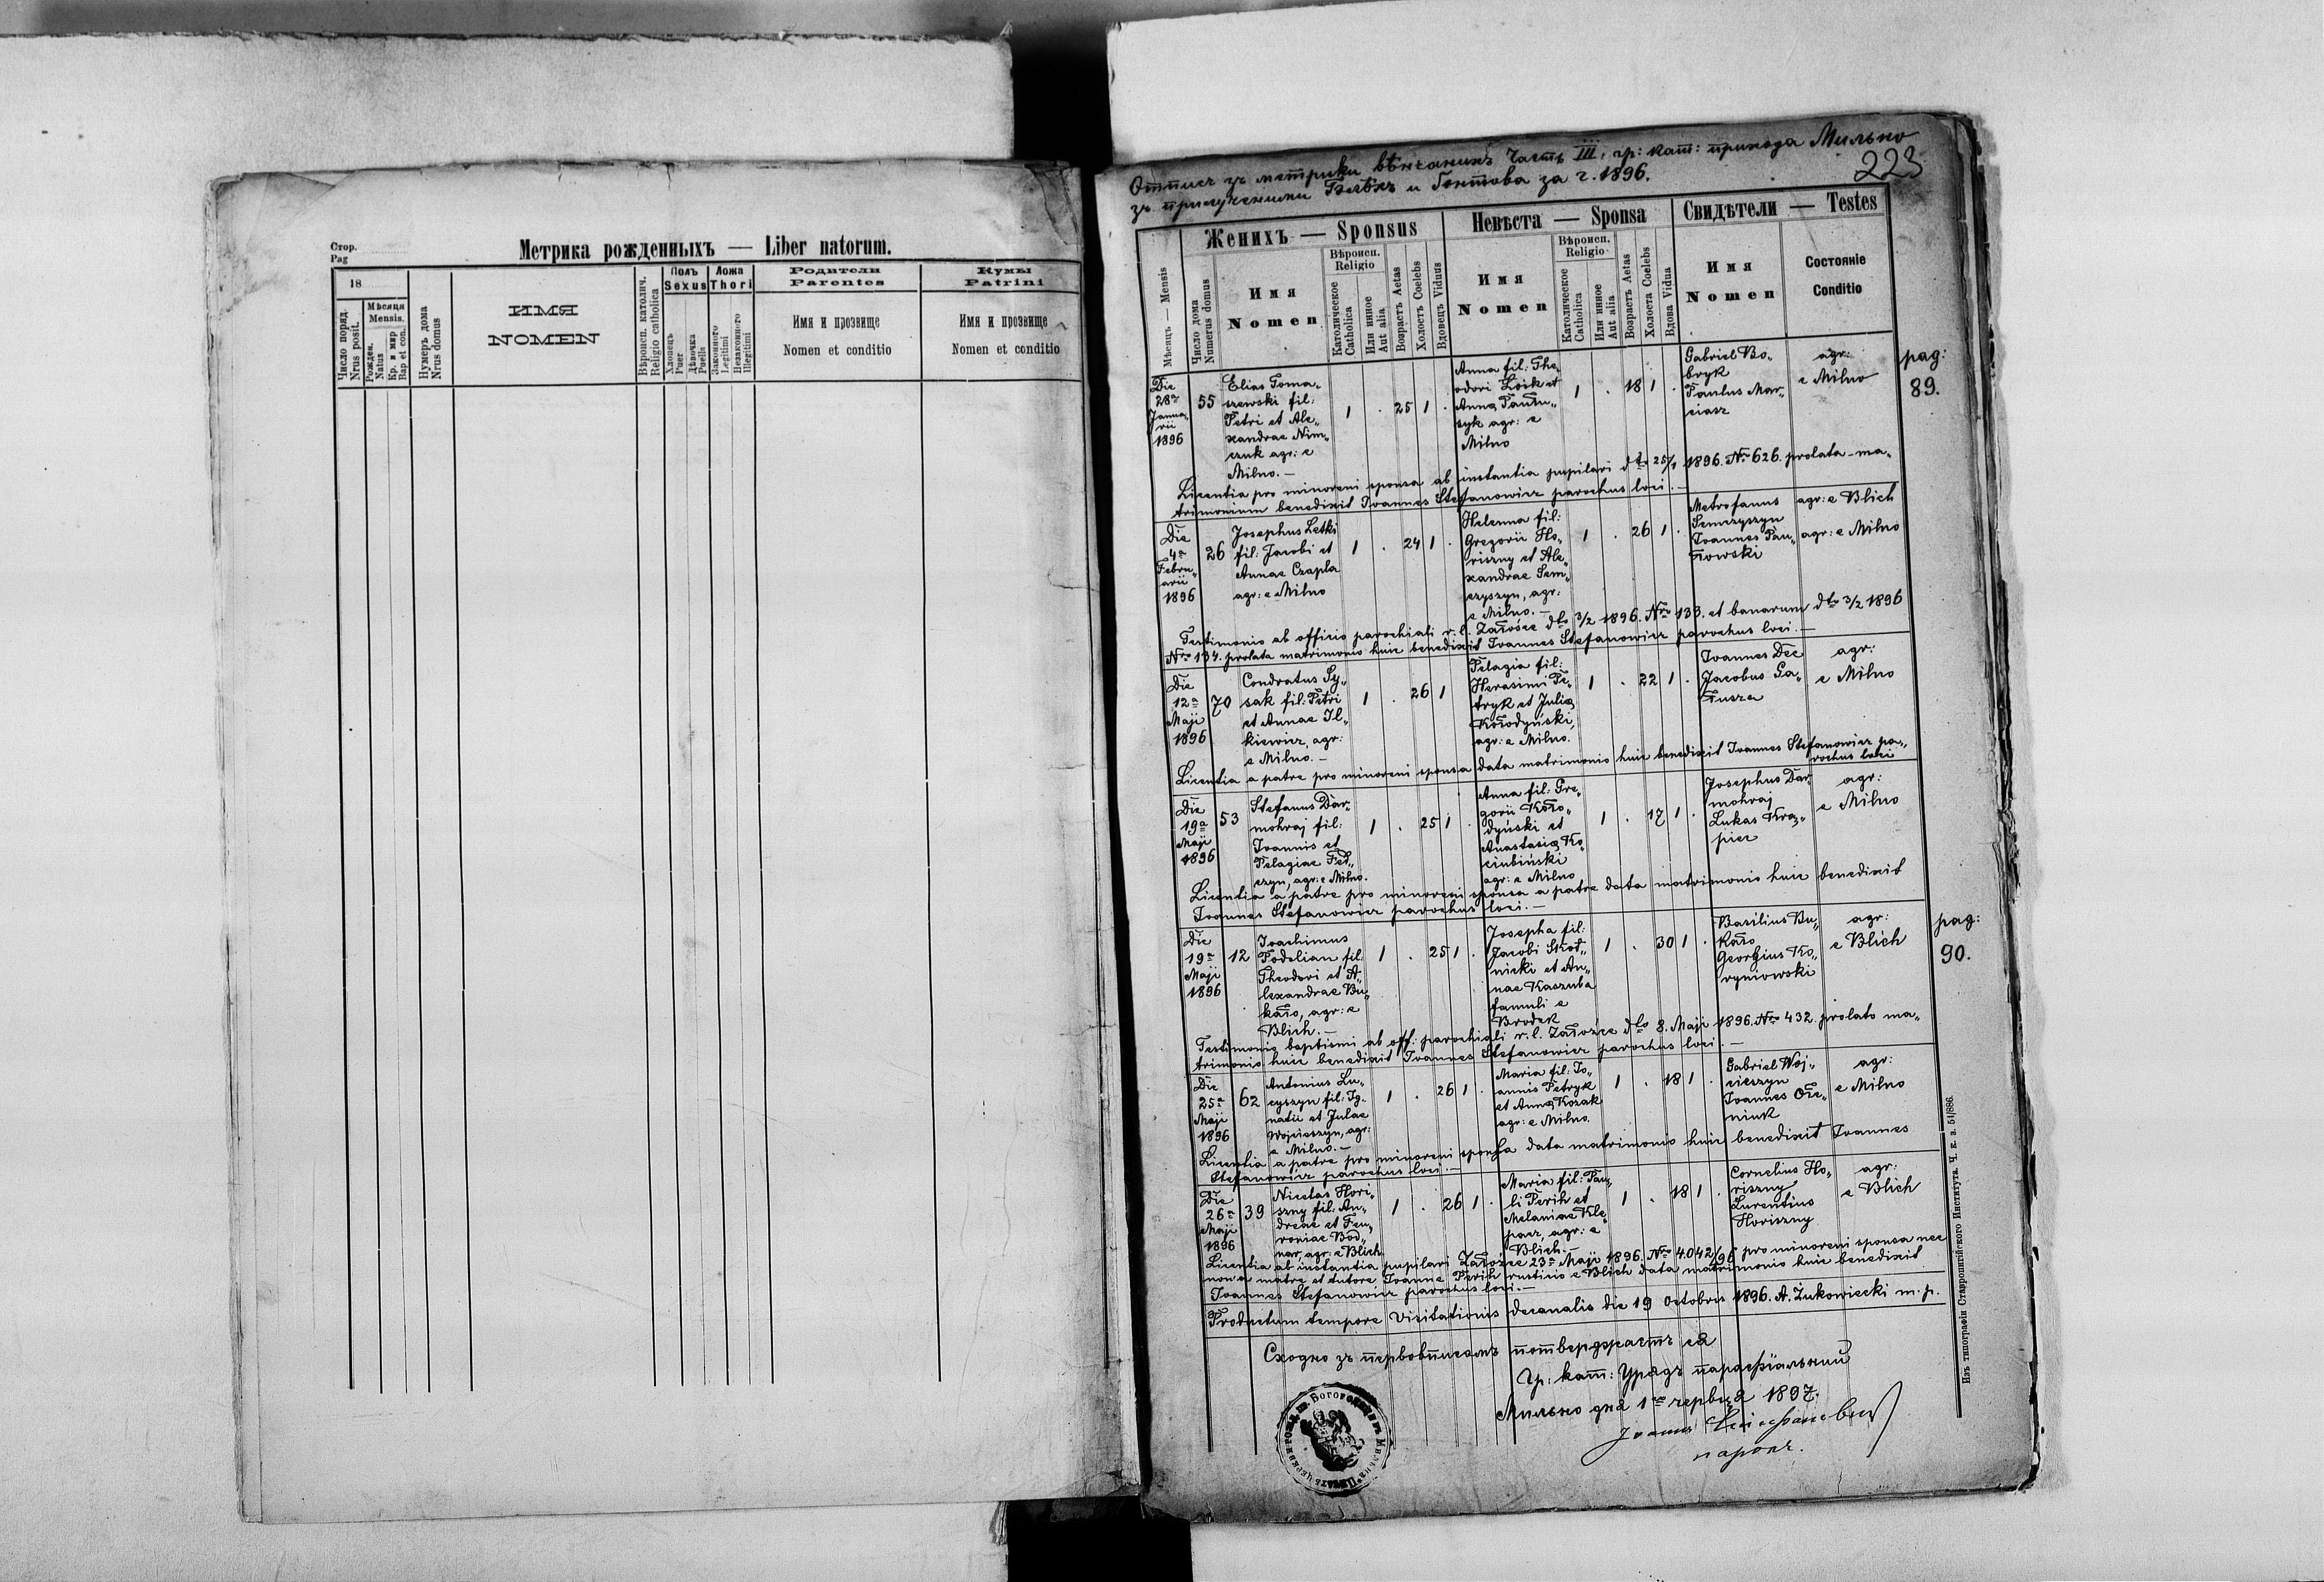 Стор.
Pag
Метрика рожденныхъ — Liber natorum.
18
Число поряд.
Nrus posit.
Мѣсяця
Mensis.
Рожден.
Natus
Кр. и мир
Bap et con.
Нумеръ дома
Nrus domus
ИМЯ
NOMEN
Вѣроисп. католич.
Religio catholica
Полъ
Sexus
Хлопецъ
Puer
Дѣвочка
Puella
Ложа
Thori
Законного
Legitimi
Незаконного
Illegitimi
Родители
Parentes
Имя и прозвище
Nomen et conditio
Кумы
Patrini
Имя и прозвище
Nomen et conditio
Отпись зъ метрики вѣнчаныхъ Часть III, гр: кат: прихода Мильно
зъ прилученіями Блѣхъ и Гонтова за г. 1896.
223
Женихъ — Sponsus
Невѣста — Sponsa
Свидѣтели — Testes
Мѣсяцъ — Mensis
Число дома
Numerus domus
Имя
Nomen
Вѣроисп.
Religio
Католическое
Catholica
Или инное
Aut alia
Возрастъ Aetas
Холостъ Coelebs
Вдовецъ Viduus
Имя
Nomen
Вѣроисп.
Religio
Католическое
Catholica
Или инное
Aut alia
Возрастъ Aetas
Холоста Coelebs
Вдова Vidua
Имя
Nomen
Состояніе
Conditio
Die
28a
Janua„
rii
1896
55
Elias Toma„
szewski fil:
Petri et Ale„
xandrae Nim„
czuk agr: e
Milno. —
1 . 25 1 .
Anna fil: The„
odori Łoik et
Anna Pauru„
szyk agr: e
Milno
1 . 18 1 .
Gabriel Bo„
bryk
Paulus Mar„
ciasz
agr:
e Milno
pag:
89.
Licentia pro minoreni sponsa ab instantia pupilari dto 25/1 1896. No 626. prolata ma„
trimonium benedixit Ioannes Stefanowicz parochus loci. —
Die
4a
Febru„
arii
1896
26
Josephus Letki
fil: Jacobi et
Annae Czapla
agr: e Milno
1 . 24 1 .
Helenna fil:
Gregorii Ho„
riszny et Ale„
xandrae Sem„
czyszyn, agr:
e Milno. —
1 . 26 1 .
Metrofanus
Semczyszyn
Ioannes Pau„
łowski
agr: e Blich
agr: e Milno
Testimonio ab officio parochiali r. l. Załośce dto 3/2 1896. Nro 133. et banarum dto 3/2 1896
Nro 134. prolata matrimonio huic benedixit Ioannes Stefanowicz parochus loci. —
Die
12a
Maji
1896
70
Condratus Sy„
sak fil: Petri
et Annae Il„
kiewicz, agr:
e Milno. —
1 . 26 1
Pelagia fil:
Herasimi Pe„
tryk et Julia
Kołodyński,
agr: e Milno.
1 . 22 1 .
Ioannes Dec
Jacobus Ga„
łusza
agr:
e Milno
Licentia a patre pro minoreni sponsa data matrimonio huic benedixit Ioannes Stefanowicz pa„
rochus loci
Die
19a
Maji
1896
53
Stefanus Dar„
mohraj fil:
Ioannis et
Pelagiae Fed„
czyn, agr: e Milno.
1 . 25 1 .
Anna fil: Gre„
gorii Koło„
dyński et
Anastasia Ko„
ciubiński
agr: e Milno
1 . 17 1 .
Josephus Dar„
mohraj
Lukas Kra„
pier
agr:
e Milno
Licentia a patre pro minoreni sponsa a patre data matrimonio huic benedixit
Ioannes Stefanowicz parochus loci. —
Die
19a
Maji
1896
12
Ioachimus
Podolian fil
Theodori et A„
lexandrae Bu„
kało, agr: e
Blich. —
1 . 25 1 .
Josepha fil:
Jacobi Skot„
nicki et An„
nae Kaszuba
famuli e
Brodek
1 . 30 1 .
Basilius Bu„
kało
Georgius Ko„
ryniowski
agr:
e Blich
pag:
90.
Testimonio baptismi ab off: parochiali r. l. Załośce dto 8. Maji 1896. Nro 432. prolato ma„
trimonio huic benedixit Ioannes Stefanowicz parochus loci. —
Die
25a
Maji
1896
62
Antonius Lu„
cyszyn fil: Ig„
natii et Julae
Wojcieszyn, agr:
e Milno. —
1 . 26 1 .
Maria fil: Io„
annis Petryk
et Anna Kozak
agr: e Milno.
1 . 18 1 .
Gabriel Woj„
cieszyn
Ioannes Ołe„
niuk
agr:
e Milno
Licentia a patre pro minoreni sponsa data matrimonio huic benedixit Ioannes
Stefanowicz parochus loci. —
Die
26a
Maji
1896
39
Nicetas Hori„
szny fil: An„
dreae et Feu„
roniae Bod„
nar, agr: e Blich
1 . 26 1 .
Maria fil: Pau„
li Perih et
Melaniae Kle„
parz, agr: e
Blich. —
1 . 18 1 .
Cornelius Ho„
riszny
Lurentius
Horiszny
agr:
e Blich
Licentia ab instantia pupilari Załośce 23a Maji 1896. Nro 4042/96 pro minoreni sponsa nec
non a matre et tutore Ioanne Perih rustico e Blich data matrimonio huic benedixit
Ioannes Stefanowicz parochus loci. —
Productum tempore Visitationis decanalis die 19 Octobris 1896. A. Żukowiecki m. p.
Сходно зъ первописомъ потверджаєтъ ся
Гр: кат: Урядъ парафіяльный
Мильно дня 1го червця 1897.
Іоаннъ Стефановичъ
парохъ.
Изъ типографіи Ставропигійского Института. Ч. к. з. 51/886.